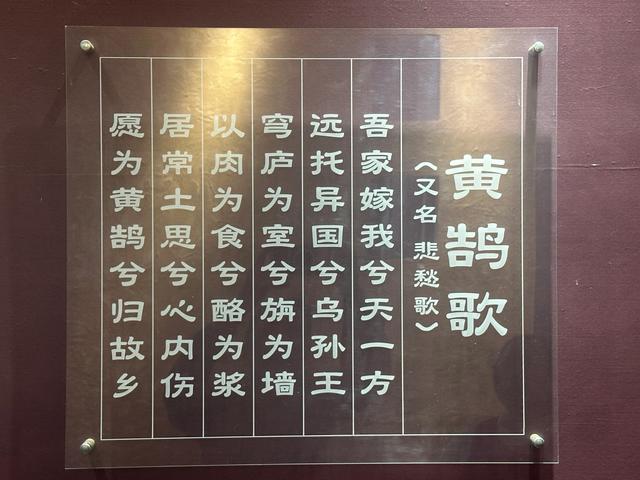 黄鹄歌
（又名 悲愁歌）
吾家嫁我兮天一方
远托异国兮乌孙王
穹庐为室兮旃为墙
以肉为食兮酪为浆
居常土思兮心内伤
愿为黄鹄兮归故乡